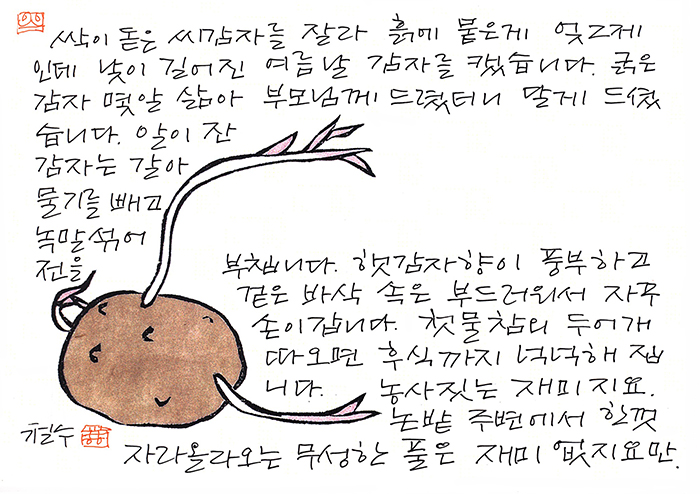 싹이 돋은 씨감자를 잘라 흙에 묻은게 엊그제
인데 낮이 길어진 여름날 감자를 캤습니다. 굵은
감자 몇알 삶아 부모님께 드렸더니 달게 드셨
습니다. 알이 잔
감자는 갈아
물기를 빼고
녹말섞어
전을
부칩니다. 햇감자향이 풍부하고
겉은 바삭 속은 부드러워서 자꾸
손이갑니다. 첫물참외 두어개
따오면 후식까지 넉넉해 집
니다. 농사짓는 재미지요.
논밭 주변에서 한껏
철수
자라올라오는 무성한 풀은 재미 없지요만.